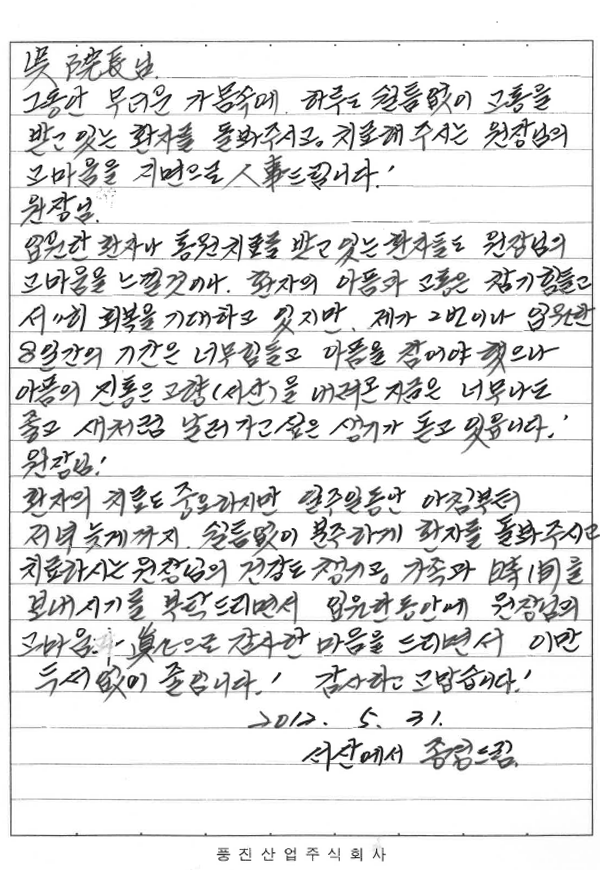 吳 院長님.
그동안 무더운 가뭄속에. 하루도 쉴틈없이 고통을
받고 있는 환자를 돌봐주시고, 치료해 주시는 원장님의
고마움을 지면으로 人事드립니다.!
원장님.
입원한 환자나 통원치료를 받고 있는 환자들도 원장님의
고마움을 느낄것이나. 환자의 아픔과 고통은 참기힘들고
서서히 회복을 기대하고 있지만, 제가 2번이나 입원한
8일간의 기간은 너무힘들고 아픔을 참어야 했으나
아픔의 진통은 고향(서산)을 내려온 지금은 너무나도
좋고 새처럼 날러가고싶은 생기가 돋고 있읍니다.!
원장님!
환자의 치료도 중요하지만 일주일동안 아침부터
저녁 늦게까지. 쉴틈없이 분주하게 환자를 돌봐주시고
치료하시는 원장님의 건강도 챙기고, 가족과 時間를
보내시기를 부탁드리면서 입원한동안에 원장님의
고마움 眞心으로 감사한 마음을 드리면서 이만
두서없이 줄입니다.! 감사하고 고맙습니다.!
2012. 5. 31.
서산에서 드림.
풍진산업주식회사